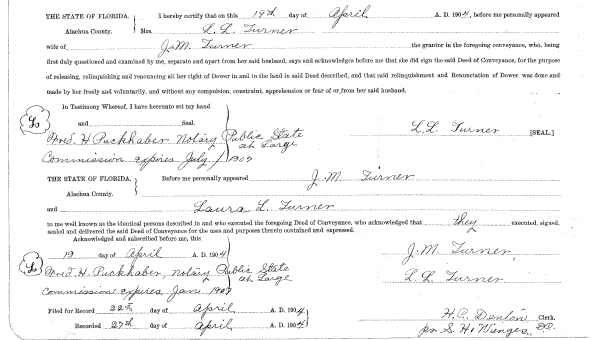 THE STATE OF FLORIDA, I hereby certify that on this 19th day of April A. D. 1904, before me personally appeared
Alachua County. Mrs. L. L. Turner
wife of J. M. Turner the grantor in the foregoing conveyance, who, being
first duly questioned and examined by me, separate and apart from her said husband, says and acknowledges before me that she did sign the said Deed of Conveyance, for the purpose
of releasing, relinquishing and renouncing all her right of Dower in and to the land in said Deed described, and that said relinquishment and Renunciation of Dower was done and
made by her freely and voluntarily, and without any compulsion, constraint, apprehension or fear of or from her said husband.
In Testimony Whereof, I have hereunto set my hand
and Seal.
L. S.
Fred. H Puckhaber Notary Public State at Large
L. L. Turner [SEAL.]
Commission expires July / 1907
THE STATE OF FLORIDA, Before me personally appeared J. M. Turner
Alachua County.
and Laura L. Turner
to me well known as the identical persons described in and who executed the foregoing Deed of Conveyance, who acknowledged that they executed, signed,
sealed and delivered the said Deed of Conveyance for the uses and purposes therein contained and expressed.
Acknowledged and subscribed before me, this
19 day of April A. D. 1904
J. M. Turner,
L. S.
Fred. H. Puckhaber, Notary Public State at Large
L. L. Turner
Commission expires June 1907
Filed for Record 22d day of April A. D. 1904
H. C. Denton Clerk.
Recorded 27th day of April A. D. 1904
per S. H. Wienges D.C.